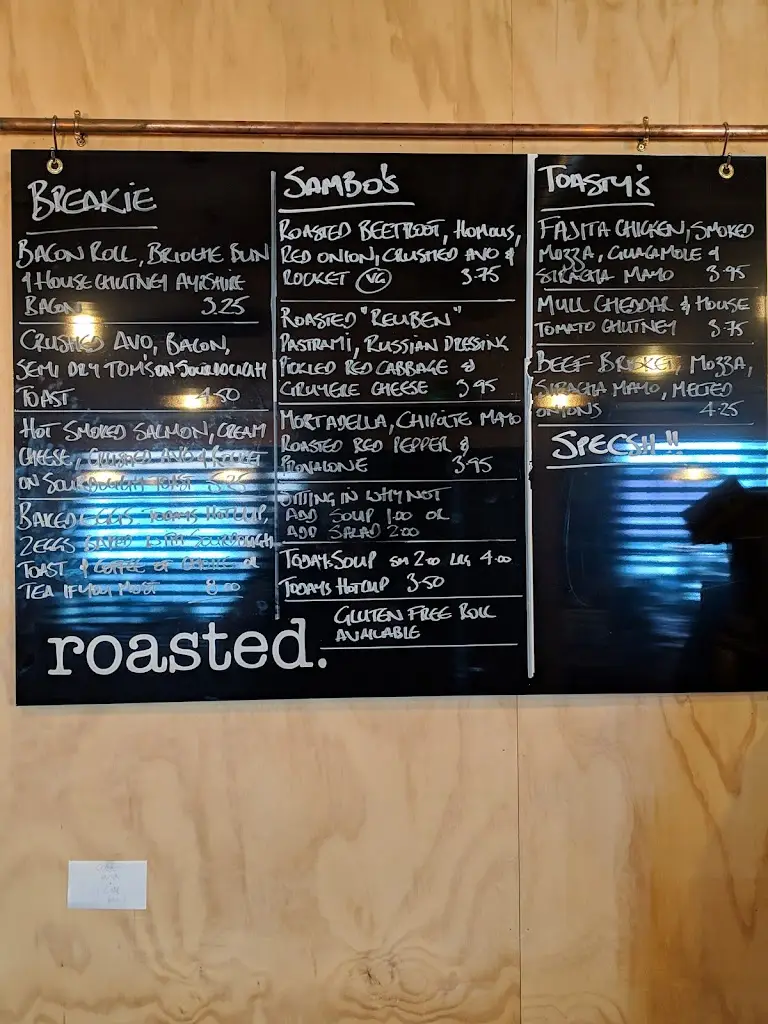 BREAKIE
BACON ROLL, BRIOCHE BUN
& HOUSE CHUTNEY AYRSHIRE
BACON 3.25
CRUSHED AVO, BACON,
SEMI DRY TOM'S ON SOURDOUGH
TOAST 4.50
HOT SMOKED SALMON, CREAM
CHEESE, CRUSHED AVO & ROCKET
ON SOURDOUGH TOAST 5.25
BAKED EGGS TODAYS HOTCUP,
2 EGGS BAKED WITH SOURDOUGH
TOAST & COFFEE OF CHOICE OR
TEA IF YOU MUST 8.00
SAMBO'S
ROASTED BEETROOT, HOMOUS,
RED ONION, CRUSHED AVO &
ROCKET VG 3.75
ROASTED "REUBEN"
PASTRAMI, RUSSIAN DRESSING
PICKLED RED CABBAGE &
GRUYERE CHEESE 3.95
MORTADELLA, CHIPOTLE MAYO
ROASTED RED PEPPER &
PROVALONE 3.95
SITTING IN WHY NOT
ADD SOUP 1.00 OR
ADD SALAD 2.00
TODAYS SOUP SM 2.00 LRG 4.00
TODAYS HOTCUP 3.50
GLUTEN FREE ROLL
AVAILABLE
TOASTY'S
FAJITA CHICKEN, SMOKED
MOZZA, GUACAMOLE &
SIRACHA MAYO 3.95
MULL CHEDDAR & HOUSE
TOMATO CHUTNEY 3.75
BEEF BRISKET, MOZZA,
SIRACHA MAYO, MELTED
ONIONS 4.25
SPECSH!!
roasted.